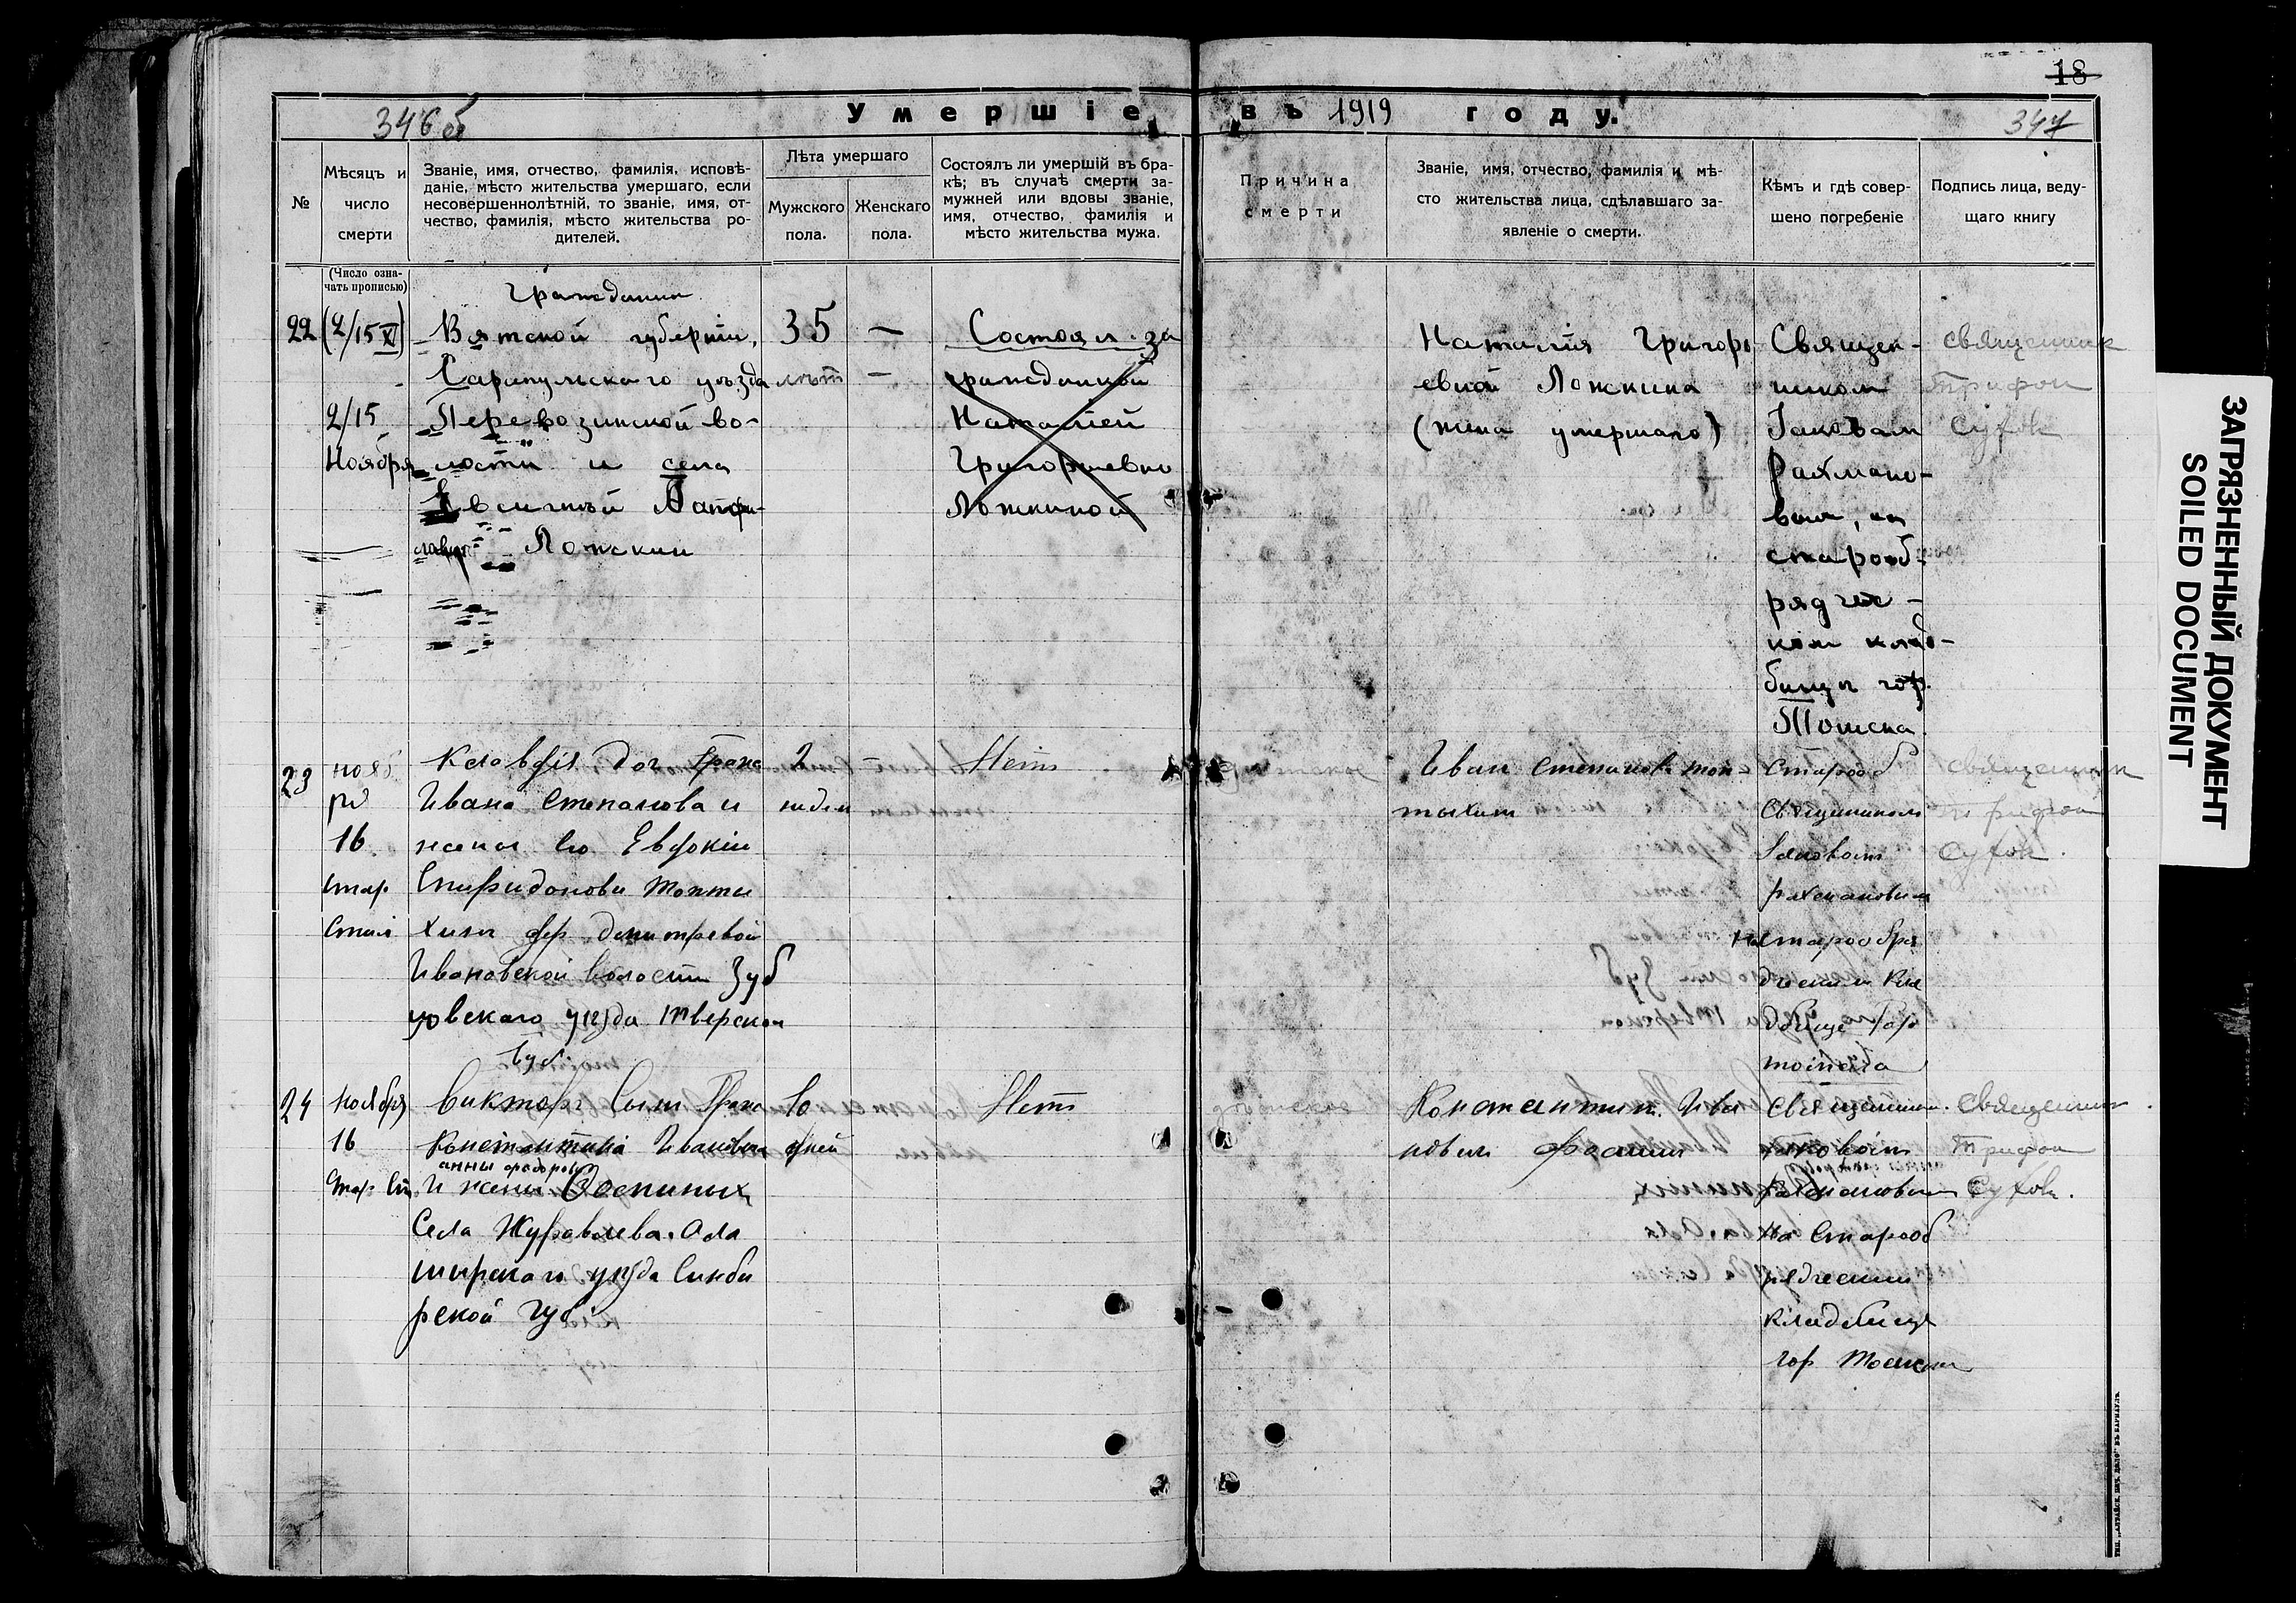 18
346 об
Умершіе въ 1919 году.
347
№
Мѣсяцъ и
число
смерти
Званіе, имя, отчество, фамилія, исповѣ-
даніе, мѣсто жительства умершаго, если
несовершеннолѣтній, то званіе, имя, от-
чество, фамилія, мѣсто жительства ро-
дителей.
Лѣта умершаго
Мужского
пола.
Женскаго
пола.
Состоялъ ли умершій въ бра-
кѣ; въ случаѣ смерти за-
мужней или вдовы званіе,
имя, отчество, фамилія и
мѣсто жительства мужа.
Причина
смерти
Званіе, имя, отчество, фамилія и мѣ-
сто жительства лица, сдѣлавшаго за-
явленіе о смерти.
Кѣмъ и гдѣ совер-
шено погребеніе
Подпись лица, веду-
щаго книгу
(Число озна-
чать прописью)
22
(2/15 XI)
2/15
Ноября
Гражданин
Вятской губерніи,
Сарапульскаго уѣзда
Перевозинской во-
лости и села
Ложкин
35
лѣт
—
—
Состоял за
гражданкой
Наталіей
Григорьевно
Ложкиной
Наталія Григорь
евной Ложкина
(жена умершаго)
Священ-
ником
Іаковам
Рахмано-
вым, на
старооб-
рядчес-
ком клад-
бищѣ гор.
Томска
священник
Трифон
Сухов
23
нояб
ря
16
стар
стил
Клавдія доч граж
Ивана Степанова и
жены его Евдокіи
Спиридоновы Топты
хины дер Дмитревой
Ивановской волости Зуб
цовскаго уѣзда Тверской
губ.
2
недел
—
Нет
Иван Степанов Топ-
тыхин
Старооб
Священником
Іаковом
Рахмановым
На старообря
дческом Кла
дбище Гор
Томска
священник
Трифон
Сухов.
24
Ноября
16
стар. ст.
Виктор Сын Граж
Константина Иванова
анны федоровы
и жены
Села Журавлева. Ала
тырскаго уѣзда Симби
рской губ
10
дней
Нет
детское
Константин. Ива
нович
Священник.
Іаковом
Рахмановым
На Старооб
рядческом
Кладбище
гор Томска
Священник.
Трифон
Сухов.
ТИП. „АЛТАЙСК. ПЕЧ. ДѢЛО“ ВЪ БАРНАУЛѢ.
ЗАГРЯЗНЕННЫЙ ДОКУМЕНТ
SOILED DOCUMENT